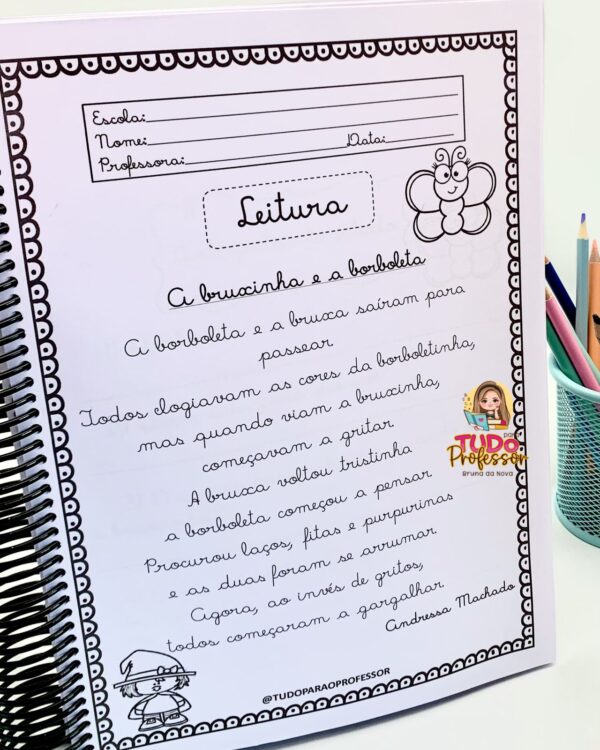 Escola:
Nome: Data:
Professora:
Leitura
A bruxinha e a borboleta
A borboleta e a bruxa saíram para
passear
Todos elogiavam as cores da borboletinha,
mas quando viam a bruxinha,
começavam a gritar
A bruxa voltou tristinha
a borboleta começou a pensar
Procurou laços, fitas e purpurinas
e as duas foram se arrumar
Agora, ao invés de gritos,
todos começaram a gargalhar
Andressa Machado
@TUDOPARAOPROFESSOR
TUDO para
Professor
Bruna da Nova